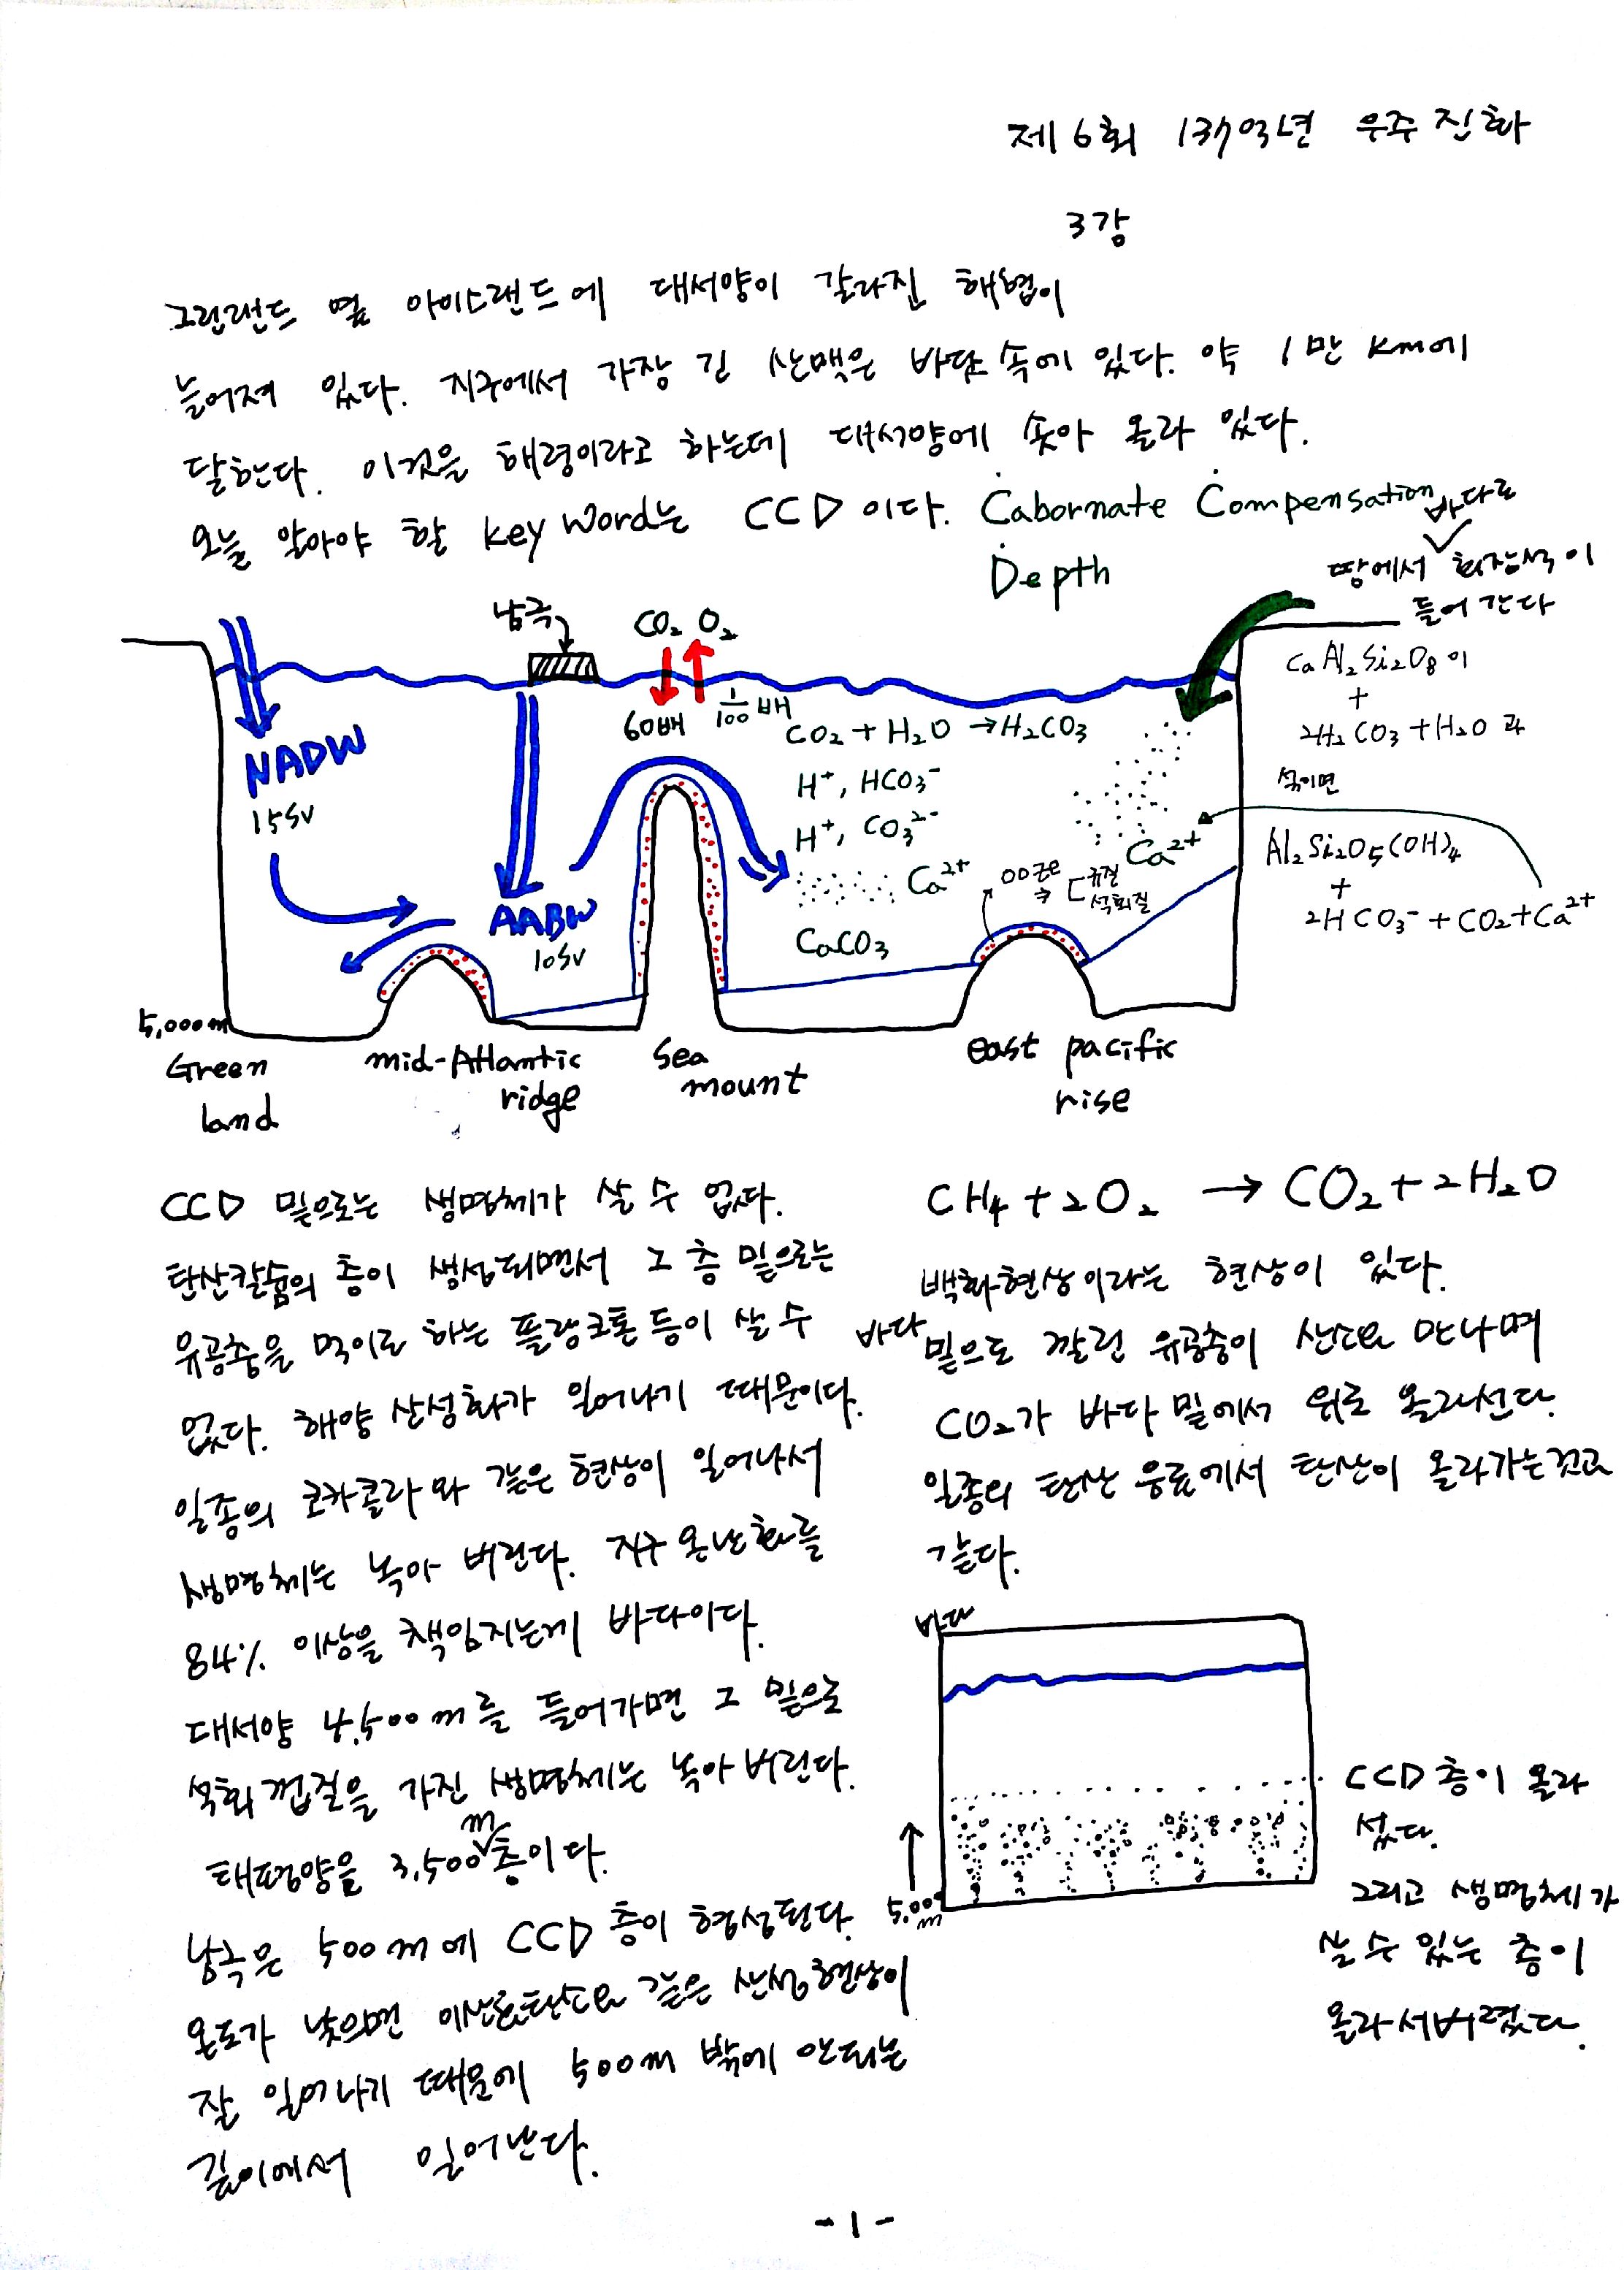 제6회 137억년 우주진화
3강
그린랜드 옆 아이스랜드에 대서양이 갈라진 해협이
늘어져 있다. 지구에서 가장 긴 산맥은 바닷속에 있다. 약 1만 Km에
달한다. 이것을 해령이라고 하는데 대서양에 솟아 올라 있다.
오늘 알아야 할 key word는 CCD이다. Cabornate Compensation
Depth
바다로
땅에서 ✓ 퇴적암석이
들어간다
남극
CO₂ O₂
60배
1/100 배
NADW
15Sv
AABW
10Sv
CO₂ + H₂O → H₂CO₃
H⁺, HCO₃⁻
H⁺, CO₃²⁻
Ca²⁺
CaCO₃
Ca²⁺
규질
석회질
CaAl₂Si₂O₈이
+
2H₂CO₃ + H₂O 과
섞이면
Al₂Si₂O₅(OH)₄
+
2HCO₃⁻ + CO₂ + Ca²⁺
5,000m
Green
land
mid-Atlantic
ridge
Sea
mount
east pacific
rise
CCD 밑으로는 생명체가 살 수 없다.
탄산칼슘의 층이 생성되면서 그 층 밑으로는
유공충을 먹이로 하는 플랑크톤 등이 살 수
없다. 해양 산성화가 일어나기 때문이다.
일종의 코카콜라와 같은 현상이 일어나서
생명체는 녹아 버린다. 지구온난화를
84% 이상을 책임지는게 바다이다.
대서양 4,500m를 들어가면 그 밑으로
석회 껍질을 가진 생명체는 녹아버린다.
태평양을 3,500m층이다.
남극은 500m에 CCD 층이 형성된다.
온도가 낮으면 이산화탄소와 같은 산성현상이
잘 일어나기 때문에 500m 밖에 안되는
깊이에서 일어난다.
CH₄ + 2O₂ → CO₂ + 2H₂O
백화현상이라는 현상이 있다.
바다 밑으로 깔린 유공충이 산소와 만나며
CO₂가 바다 밑에서 위로 올라선다.
일종의 탄산 음료에서 탄산이 올라가는것과
같다.
바다
5,000
m
CCD층이 올라
섰다.
그리고 생명체가
살 수 있는 층이
올라서버렸다.
-1-